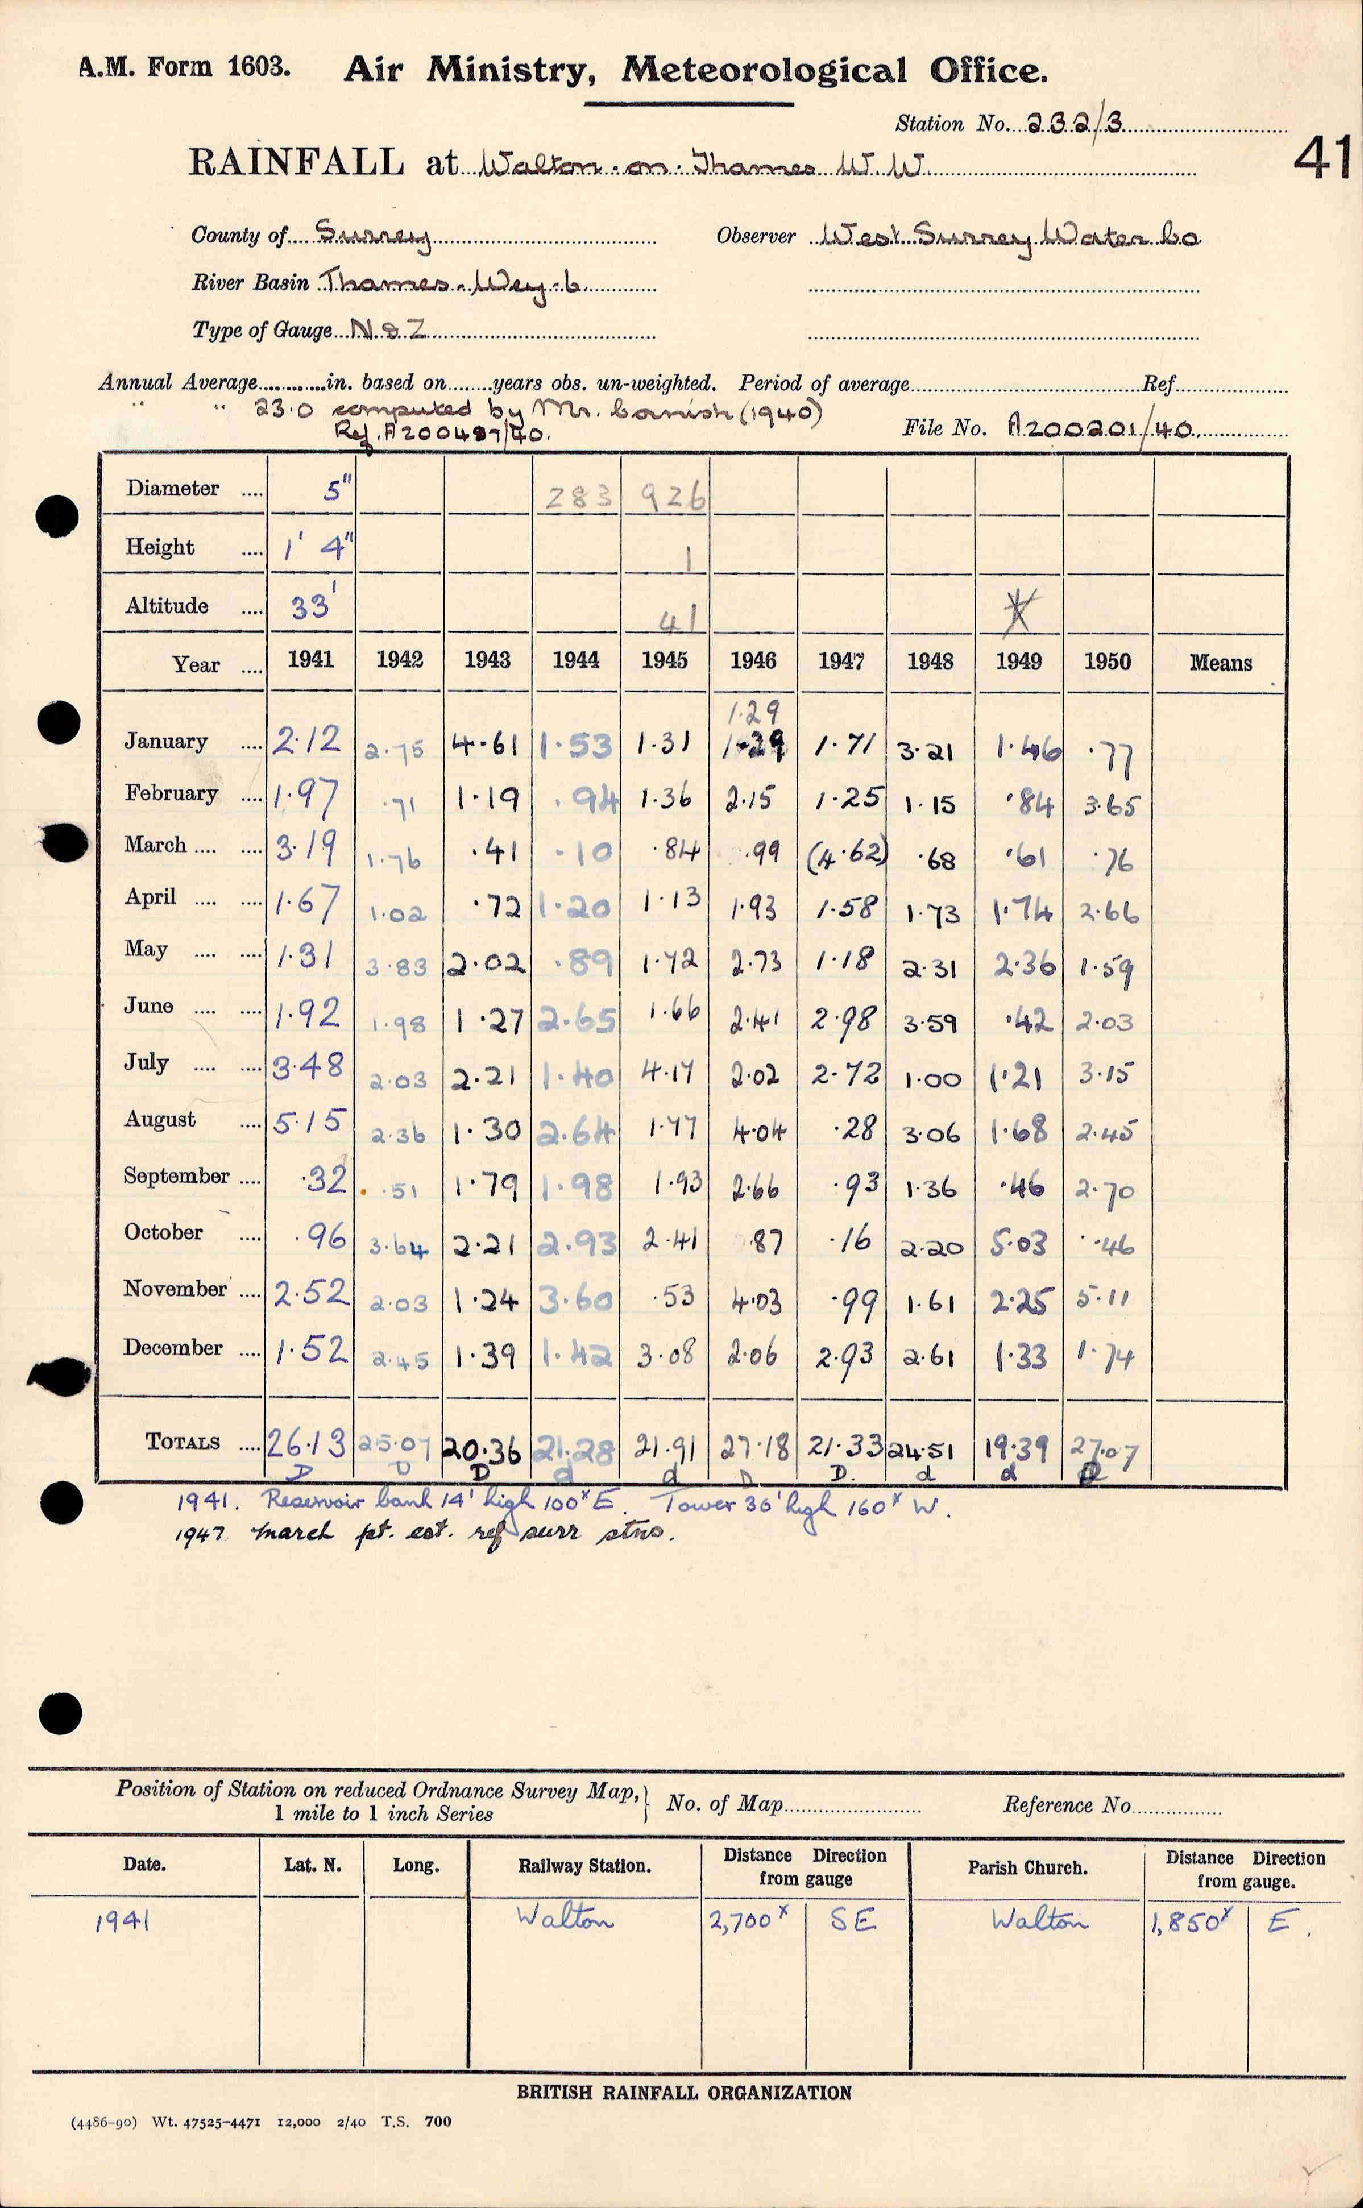 A.M. Form 1603. Air Ministry, Meteorological Office.
Station No. 232/3
41
RAINFALL at Walton-on-Thames W.W.
County of Surrey Observer West Surrey Water Co
River Basin Thames-Wey-6
Type of Gauge N&Z
Annual Average............in. based on........years obs. un-weighted. Period of average........Ref........
" " 23.0 computed by Mr. Cornish (1940)
Ref. A200487/40. File No. A200201/40
Diameter .... 5" 283 926
Height .... 1' 4" 1
Altitude .... 33' 41
Year .... 1941 1942 1943 1944 1945 1946 1947 1948 1949 1950 Means
1.29
January .... 2.12 2.75 4.61 1.53 1.31 1.29 1.71 3.21 1.46 .77
February .... 1.97 .71 1.19 .94 1.36 2.15 1.25 1.15 .84 3.65
March .... .... 3.19 1.76 .41 .10 .84 .99 (4.62) .68 .61 .76
April .... .... 1.67 1.02 .72 1.20 1.13 1.93 1.58 1.73 1.74 2.66
May .... .... 1.31 3.83 2.02 .89 1.72 2.73 1.18 2.31 2.36 1.59
June .... .... 1.92 1.98 1.27 2.65 1.66 2.41 2.98 3.59 .42 2.03
July .... .... 3.48 2.03 2.21 1.40 4.17 2.02 2.72 1.00 1.21 3.15
August .... 5.15 2.36 1.30 2.64 1.77 4.04 .28 3.06 1.68 2.45
September .... .32 .51 1.79 1.98 1.93 2.66 .93 1.36 .46 2.70
October .... .96 3.64 2.21 2.93 2.41 .87 .16 2.20 5.03 .46
November .... 2.52 2.03 1.24 3.60 .53 4.03 .99 1.61 2.25 5.11
December .... 1.52 2.45 1.39 1.42 3.08 2.06 2.93 2.61 1.33 1.74
TOTALS .... 26.13 25.07 20.36 21.28 21.91 27.18 21.33 24.51 19.39 27.07
D D D d d D D. d d D
1941. Reservoir bank 14' high 100x E. Tower 36' high 160x W.
1947 March pt. est. ref surr stns.
Position of Station on reduced Ordnance Survey Map,} No. of Map........ Reference No........
1 mile to 1 inch Series
Date. Lat. N. Long. Railway Station. Distance from gauge Direction Parish Church. Distance from gauge. Direction
1941 Walton 2,700x SE Walton 1,850x E.
BRITISH RAINFALL ORGANIZATION
(4486-90) Wt. 47525-4471 12,000 2/40 T.S. 700